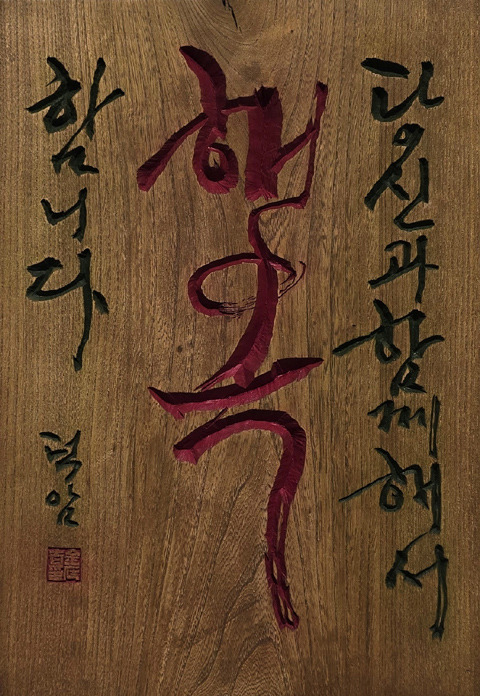 당신과 함께해서
행복
합니다
덕암